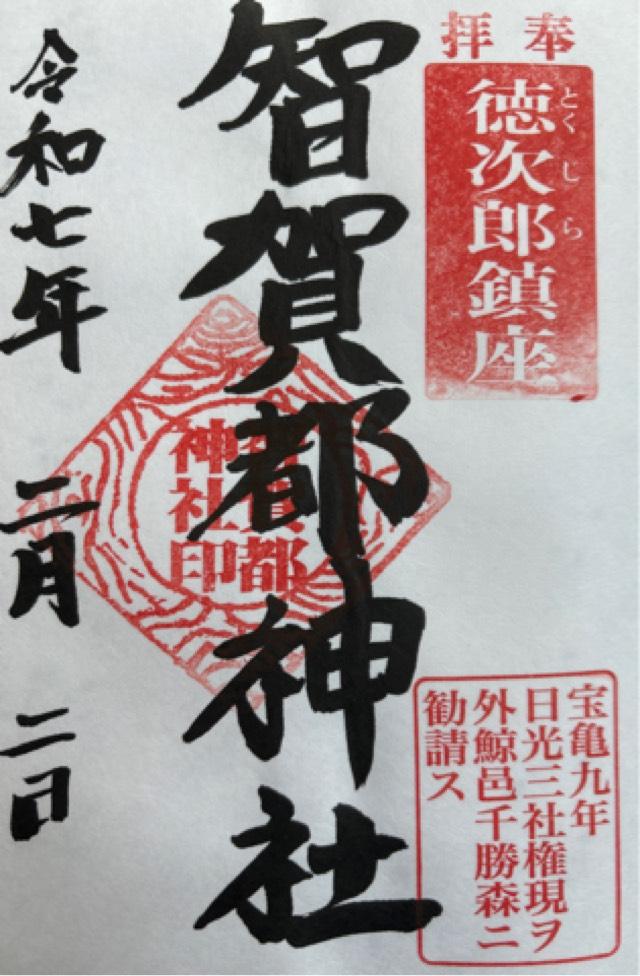 奉拝
とくじら
徳次郎鎮座
智賀都神社
智賀都
神社印
宝亀九年
日光三社権現ヲ
外鯨邑千勝森ニ
勧請ス
令和七年 二月 二日